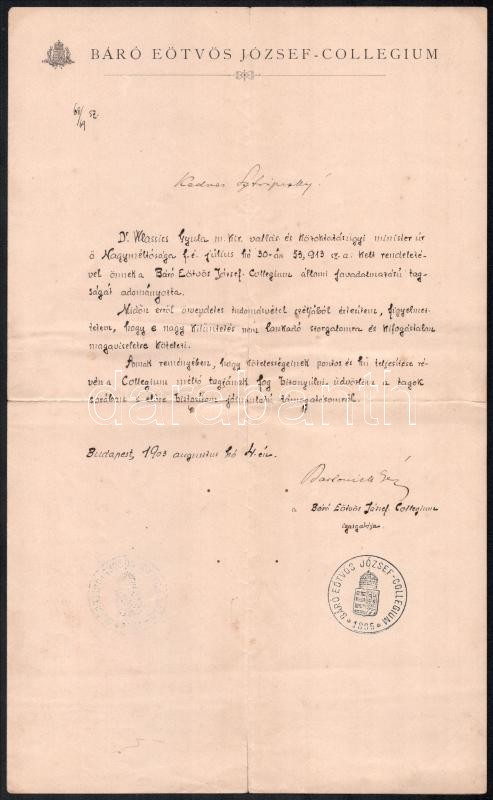 BÁRÓ EÖTVÖS JÓZSEF-COLLEGIUM
sz.
Kedves
Dr. Wlassics Gyula m. kir. vallás- és közoktatásügyi minister úr
ő Nagyméltósága f. é. július hó 30-án 53,913 sz. a. kelt rendeleté-
vel önnek a Báró Eötvös József-Collegium állami javadalmazású tag-
ságát adományozta.
Midőn erről örvendetes tudomásvétel czéljából értesítem, figyelmez-
tetem, hogy e nagy kitüntetés nem lankadó szorgalomra és kifogástalan
magaviseletre kötelezi.
Annak reményében, hogy kötelességeinek pontos és hű teljesítése ré-
vén a Collegium méltó tagjának fog bizonyulni, üdvözlöm a tagok
sorában s előre biztosítom jóindulatú támogatásomról.
Budapest, 1903 augusztus hó 4-én.
Bartoniek Géza
a Báró Eötvös József-Collegium
igazgatója.
BÁRÓ EÖTVÖS JÓZSEF-COLLEGIUM
* 1895 *
darabanth